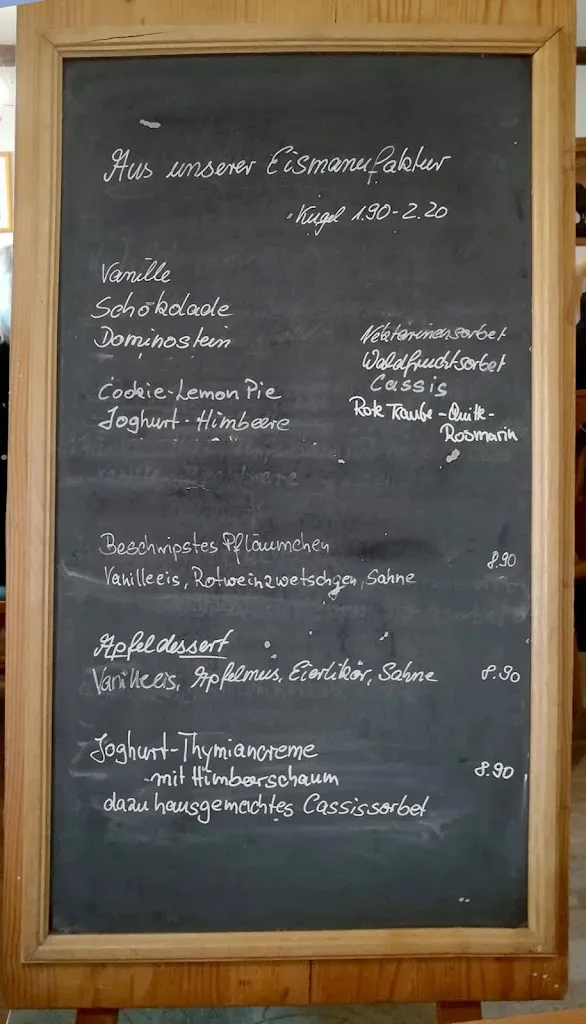 Aus unserer Eismanufaktur
Kugel 1.90-2.20
Vanille
Schokolade
Dominostein
Cookie-Lemon Pie
Joghurt-Himbeere
Nektarinensorbet
Waldfruchtsorbet
Cassis
Rote Traube-Quitte-
Rosmarin
Beschwipstes Pfläumchen
Vanilleeis, Rotweinzwetschgen, Sahne 8.90
Apfeldessert
Vanilleeis, Apfelmus, Eierlikör, Sahne 8.90
Joghurt-Thymiancreme
mit Himbeerschaum 8.90
dazu hausgemachtes Cassissorbet